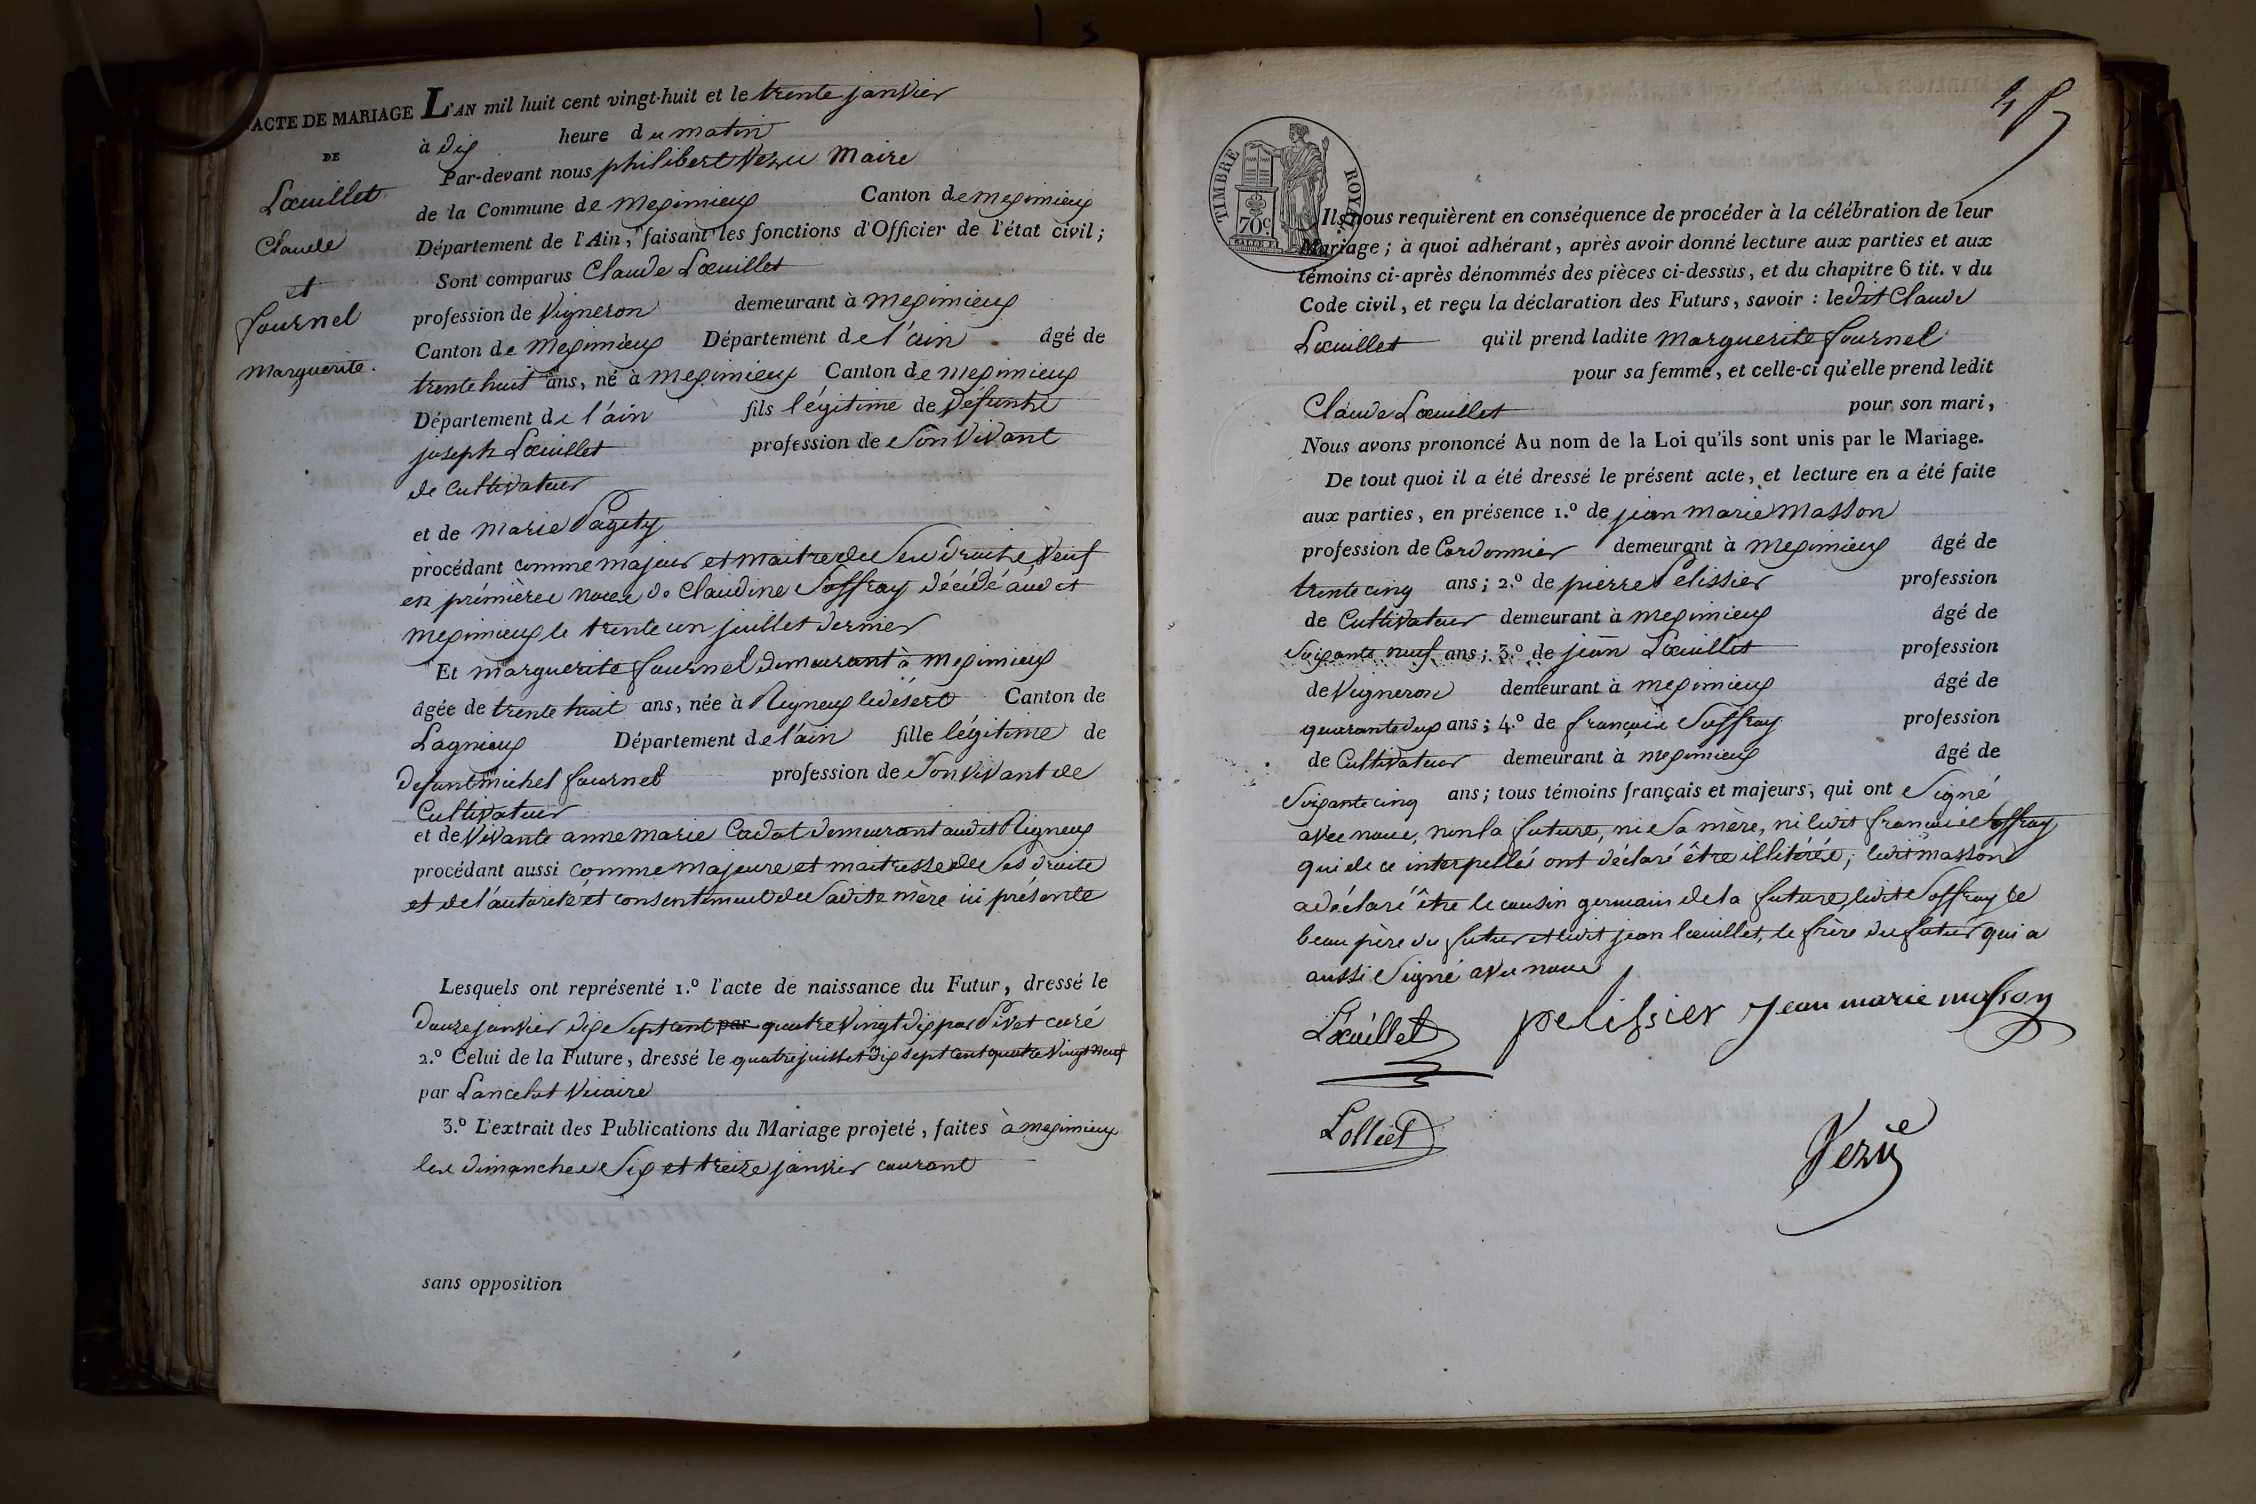 ACTE DE MARIAGE
DE
Lœuillet
Claude
et
fournel
marguerite.
L'AN mil huit cent vingt-huit et le trente janvier
à dix heure du matin
Par-devant nous philibert Vezu Maire
de la Commune de meximieux Canton de meximieux
Département de l'Ain, faisant les fonctions d'Officier de l'état civil;
Sont comparus Claude Lœuillet
profession de Vigneron demeurant à meximieux
Canton de meximieux Département de l'ain âgé de
trente huit ans, né à meximieux Canton de meximieux
Département de l'ain fils légitime de défunt
joseph Lœuillet profession de son Vivant
de Cultivateur
et de marie Pagety
procédant comme majeur et maitre de ses droits, Veuf
en premières noces de Claudine Soffray décédé audit
meximieux le trente un juillet dernier
Et marguerite fournel demeurant à meximieux
âgée de trente huit ans, née à Rigneux le désert Canton de
Lagnieux Département de l'ain fille légitime de
defunt michel fournel profession de son Vivant de
Cultivateur
et de Vivante anne marie Cadot demeurant audit Rigneux
procédant aussi comme majeure et maitresse de ses droits
et de l'autorité et consentement de sadite mère ici présente
Lesquels ont représenté 1.º l'acte de naissance du Futur, dressé le
douze janvier dix sept cent par quatre vingt dix par Pivet curé
2.º Celui de la Future, dressé le quatre juillet dix sept cent quatre vingt neuf
par Lancelot Vicaire
3.º L'extrait des Publications du Mariage projeté, faites à meximieux
les dimanches six et treize janvier courant
sans opposition
TIMBRE ROYAL
70c
Ils nous requièrent en conséquence de procéder à la célébration de leur
Mariage; à quoi adhérant, après avoir donné lecture aux parties et aux
témoins ci-après dénommés des pièces ci-dessus, et du chapitre 6 tit. v du
Code civil, et reçu la déclaration des Futurs, savoir : ledit Claude
Lœuillet qu'il prend ladite marguerite fournel
pour sa femme, et celle-ci qu'elle prend ledit
Claude Lœuillet pour son mari,
Nous avons prononcé Au nom de la Loi qu'ils sont unis par le Mariage.
De tout quoi il a été dressé le présent acte, et lecture en a été faite
aux parties, en présence 1.º de jean marie masson
profession de Cordonnier demeurant à meximieux âgé de
trente cinq ans; 2.º de pierre Pelissier profession
de Cultivateur demeurant à meximieux âgé de
soixante neuf ans; 3.º de jean Lœuillet profession
de Vigneron demeurant à meximieux âgé de
quarante deux ans; 4.º de françois Soffray profession
de Cultivateur demeurant à meximieux âgé de
Soixante cinq ans; tous témoins français et majeurs, qui ont Signé
avec nous, non la future, ni sa mère, ni ledit françois Soffray
qui de ce interpellés ont déclaré être illitérés; ledit masson
a déclaré être le cousin germain de la future, ledit Soffray le
beau père du futur et ledit jean lœuillet, le frère du futur qui a
aussi Signé avec nous
Lœuillet pelissier Jean marie masson
Lolliet
Vezu